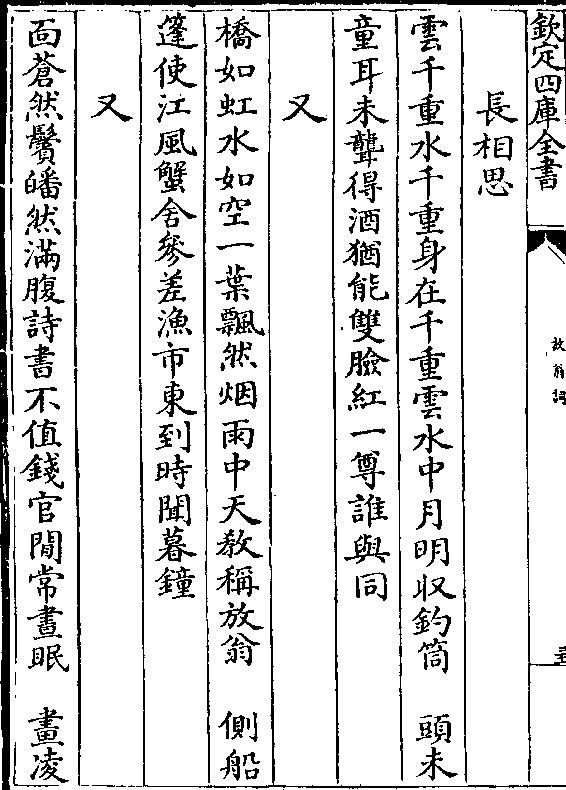 欽定四庫全書
放翁詞
長相思
雲千重水千重身在千重雲水中月明収釣筒　頭未
童耳未聾得酒猶能雙臉紅一尊誰與同
又
橋如虹水如空一葉飄然烟雨中天教稱放翁　側船
篷使江風蟹舍參差漁市東到時聞暮鐘
又
面蒼然鬢皤然滿腹詩書不值錢官閒常晝眠　畫凌